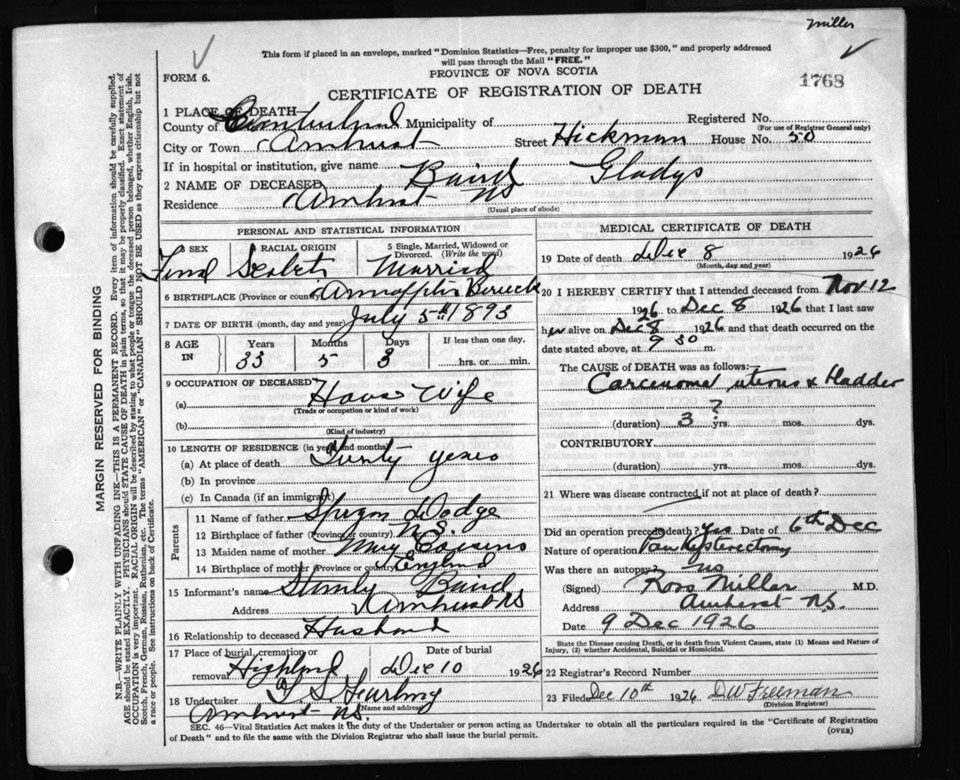 Miller
This form if placed in an envelope, marked "Dominion Statistics—Free, penalty for improper use $300," and properly addressed
will pass through the Mail "FREE."
FORM 6.
PROVINCE OF NOVA SCOTIA
1768
CERTIFICATE OF REGISTRATION OF DEATH
1 PLACE OF DEATH
County of Cumberland Municipality of Registered No.
(For use of Registrar General only)
City or Town Amherst Street Hickman House No. 50
If in hospital or institution, give name
2 NAME OF DECEASED Baird Gladys
Residence Amherst NS
(Usual place of abode)
PERSONAL AND STATISTICAL INFORMATION
3 SEX RACIAL ORIGIN 5 Single, Married, Widowed or Divorced. (Write the word)
Married
6 BIRTHPLACE (Province or country)
7 DATE OF BIRTH (month, day and year) July 5th 1893
8 AGE IN Years Months Days If less than one day,
33 5 3 hrs. or min.
9 OCCUPATION OF DECEASED
(a) House Wife
(Trade or occupation or kind of work)
(b)
(Kind of industry)
10 LENGTH OF RESIDENCE (in years and months)
(a) At place of death years
(b) In province
(c) In Canada (if an immigrant)
Parents
11 Name of father Dodge
12 Birthplace of father (Province or country) N.S.
13 Maiden name of mother Cousins
14 Birthplace of mother (Province or country) England
15 Informant's name Stanly Baird
Address Amherst NS
16 Relationship to deceased Husband
17 Place of burial, cremation or removal Highland Date of burial Dec 10 1926
18 Undertaker
(Name and address)
Amherst N.S.
MEDICAL CERTIFICATE OF DEATH
19 Date of death Dec 8 1926
(Month, day and year)
20 I HEREBY CERTIFY that I attended deceased from Nov 12
1926 to Dec 8 1926 that I last saw
her alive on Dec 8 1926 and that death occurred on the
date stated above, at 9 30 m.
The CAUSE of DEATH was as follows:
Carcenoma uterus & bladder
?
(duration) 3 yrs. mos. dys.
CONTRIBUTORY
(duration) yrs. mos. dys.
21 Where was disease contracted if not at place of death?
Did an operation precede death? Yes Date of 6th Dec
Nature of operation
Was there an autopsy? no
(Signed) Ross Millar M.D.
Address Amherst N.S.
Date 9 Dec 1926
State the Disease causing Death, or in death from Violent Causes, state (1) Means and Nature of
Injury, (2) whether Accidental, Suicidal or Homicidal.
22 Registrar's Record Number
23 Filed Dec 10th 1926 DW Freeman
(Division Registrar)
SEC. 46—Vital Statistics Act makes it the duty of the Undertaker or person acting as Undertaker to obtain all the particulars required in the "Certificate of Registration
of Death" and to file the same with the Division Registrar who shall issue the burial permit.
(OVER)
MARGIN RESERVED FOR BINDING
N.B.—WRITE PLAINLY WITH UNFADING INK—THIS IS A PERMANENT RECORD. Every item of information should be carefully supplied.
AGE should be stated EXACTLY. PHYSICIANS should STATE CAUSE OF DEATH in plain terms, so that it may be properly classified. Exact statement of
OCCUPATION is very important. RACIAL ORIGIN will be described by stating to what people or tongue the deceased person belonged, whether English, Irish,
Scotch, French, German, Russian, Ruthenian, etc. The terms "AMERICAN" or "CANADIAN" SHOULD NOT BE USED as they express citizenship but not
a race or people. See instructions on back of Certificate.